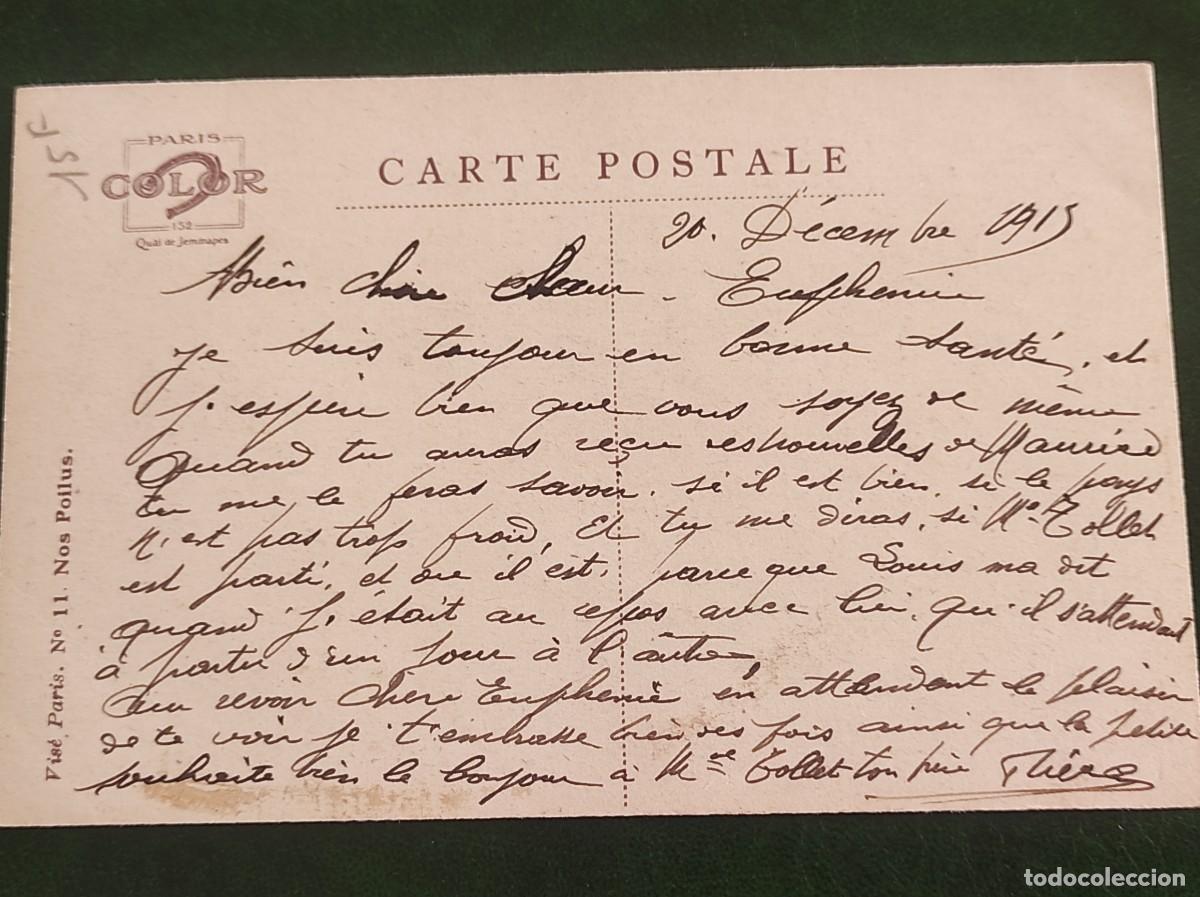 15F
PARIS
COLOR
152
Quai de Jemmapes
CARTE POSTALE
20. Décembre 1915
Bien chère Sœur. Euphemie
Je suis toujour en bonne santé, et
J'espère bien que vous soyez de même
Quand tu auras reçu des nouvelles de Maurice
tu me le feras savoir. si il est bien, si le pays
n'est pas trop froid, Et tu me diras, si Mr Tollet
est parti, et ou il est. parce que Louis ma dit
quand J'était au repos avec lui, qu'il s'attendait
à partir d'un jour à l'autre,
Au revoir chère Euphemie en attendant le plaisir
de te voir je t'embrasse bien des fois ainsi que la petite
souhaite bien le bonjour à Mme Tollet ton
Visé Paris. No 11. Nos Poilus.
todocoleccion